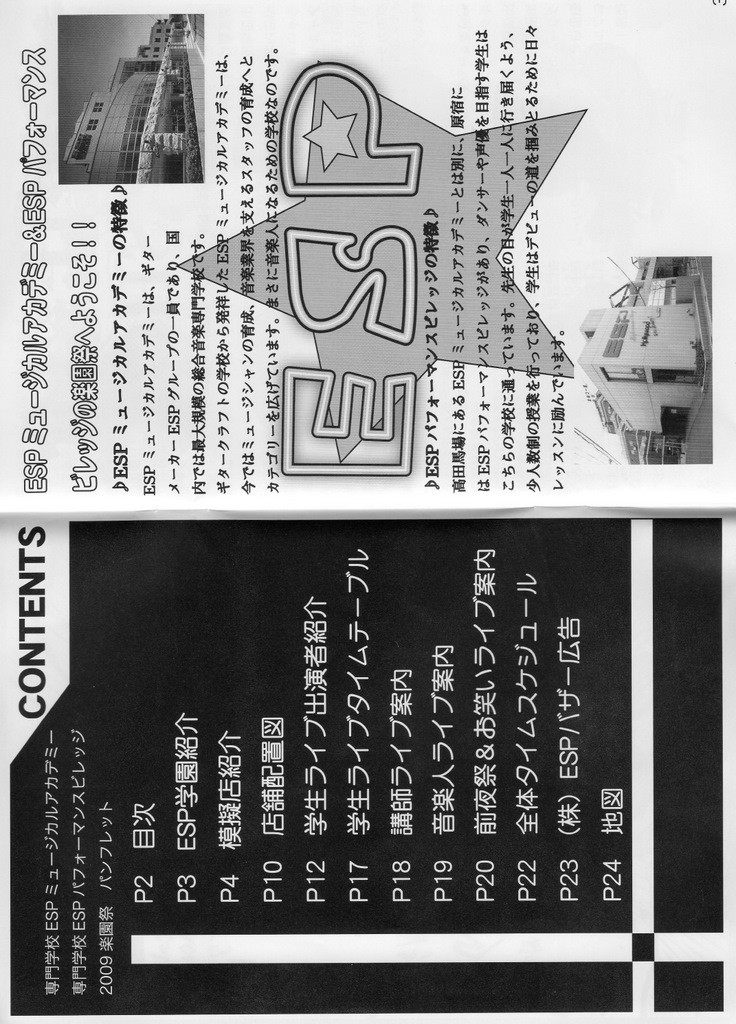 専門学校 ESP ミュージカルアカデミー
専門学校 ESP パフォーマンスビレッジ
2009 楽園祭　パンフレット
CONTENTS
P2 目次
P3 ESP学園紹介
P4 模擬店紹介
P10 店舗配置図
P12 学生ライブ出演者紹介
P17 学生ライブタイムテーブル
P18 講師ライブ案内
P19 音楽人ライブ案内
P20 前夜祭＆お笑いライブ案内
P22 全体タイムスケジュール
P23 （株）ESPバザー広告
P24 地図
ESP ミュージカルアカデミー&ESP パフォーマンス
ビレッジの楽園祭へようこそ！！
♪ESP ミュージカルアカデミーの特徴♪
ESP ミュージカルアカデミーは、ギター
メーカー ESP グループの一員であり、国
内では最大規模の総合音楽専門学校です。
ギタークラフトの学校から発祥した ESP ミュージカルアカデミーは、
今ではミュージシャンの育成、音楽業界を支えるスタッフの育成へと
カテゴリーを広げています。まさに音楽人になるための学校なのです。
ESP
♪ESP パフォーマンスビレッジの特徴♪
高田馬場にある ESP ミュージカルアカデミーとは別に、原宿に
は ESP パフォーマンスビレッジがあり、ダンサーや声優を目指す学生は
こちらの学校に通っています。先生の目が学生一人一人に行き届くよう、
少人数制の授業を行っており、学生はデビューの道を掴みとるために日々
レッスンに励んでいます。
ESP
3